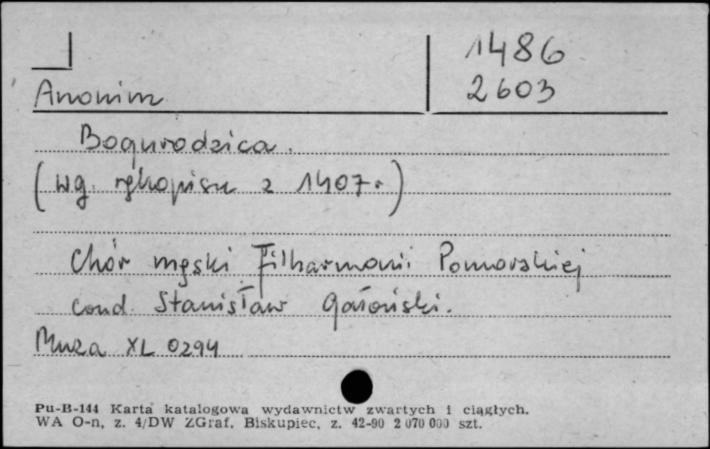 1486
2603
Anonim
Bogurodzica.
(wg. rękopisu z 1407.)
Chór męski Filharmonii Pomorskiej
cond. Stanisław Gałoński.
Muza XL 0294
Pu-B-144 Karta katalogowa wydawnictw zwartych i ciągłych.
WA O-n, z. 4/DW ZGraf. Biskupiec, z. 42-90 2 070 000 szt.